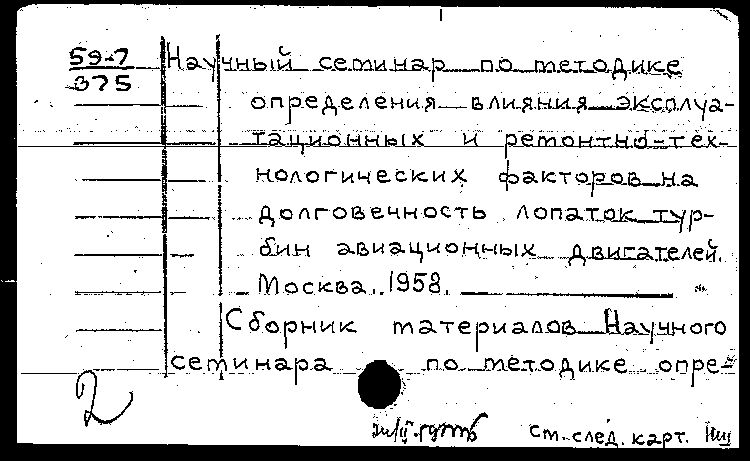 59-7
375
Научный семинар по методике
определения влияния эксплуа-
тационных и ремонтно-тех-
нологических факторов на
долговечность лопаток тур-
бин авиационных двигателей.
Москва, 1958.
Сборник материалов Научного
семинара по методике опре-
2
см. след. карт.